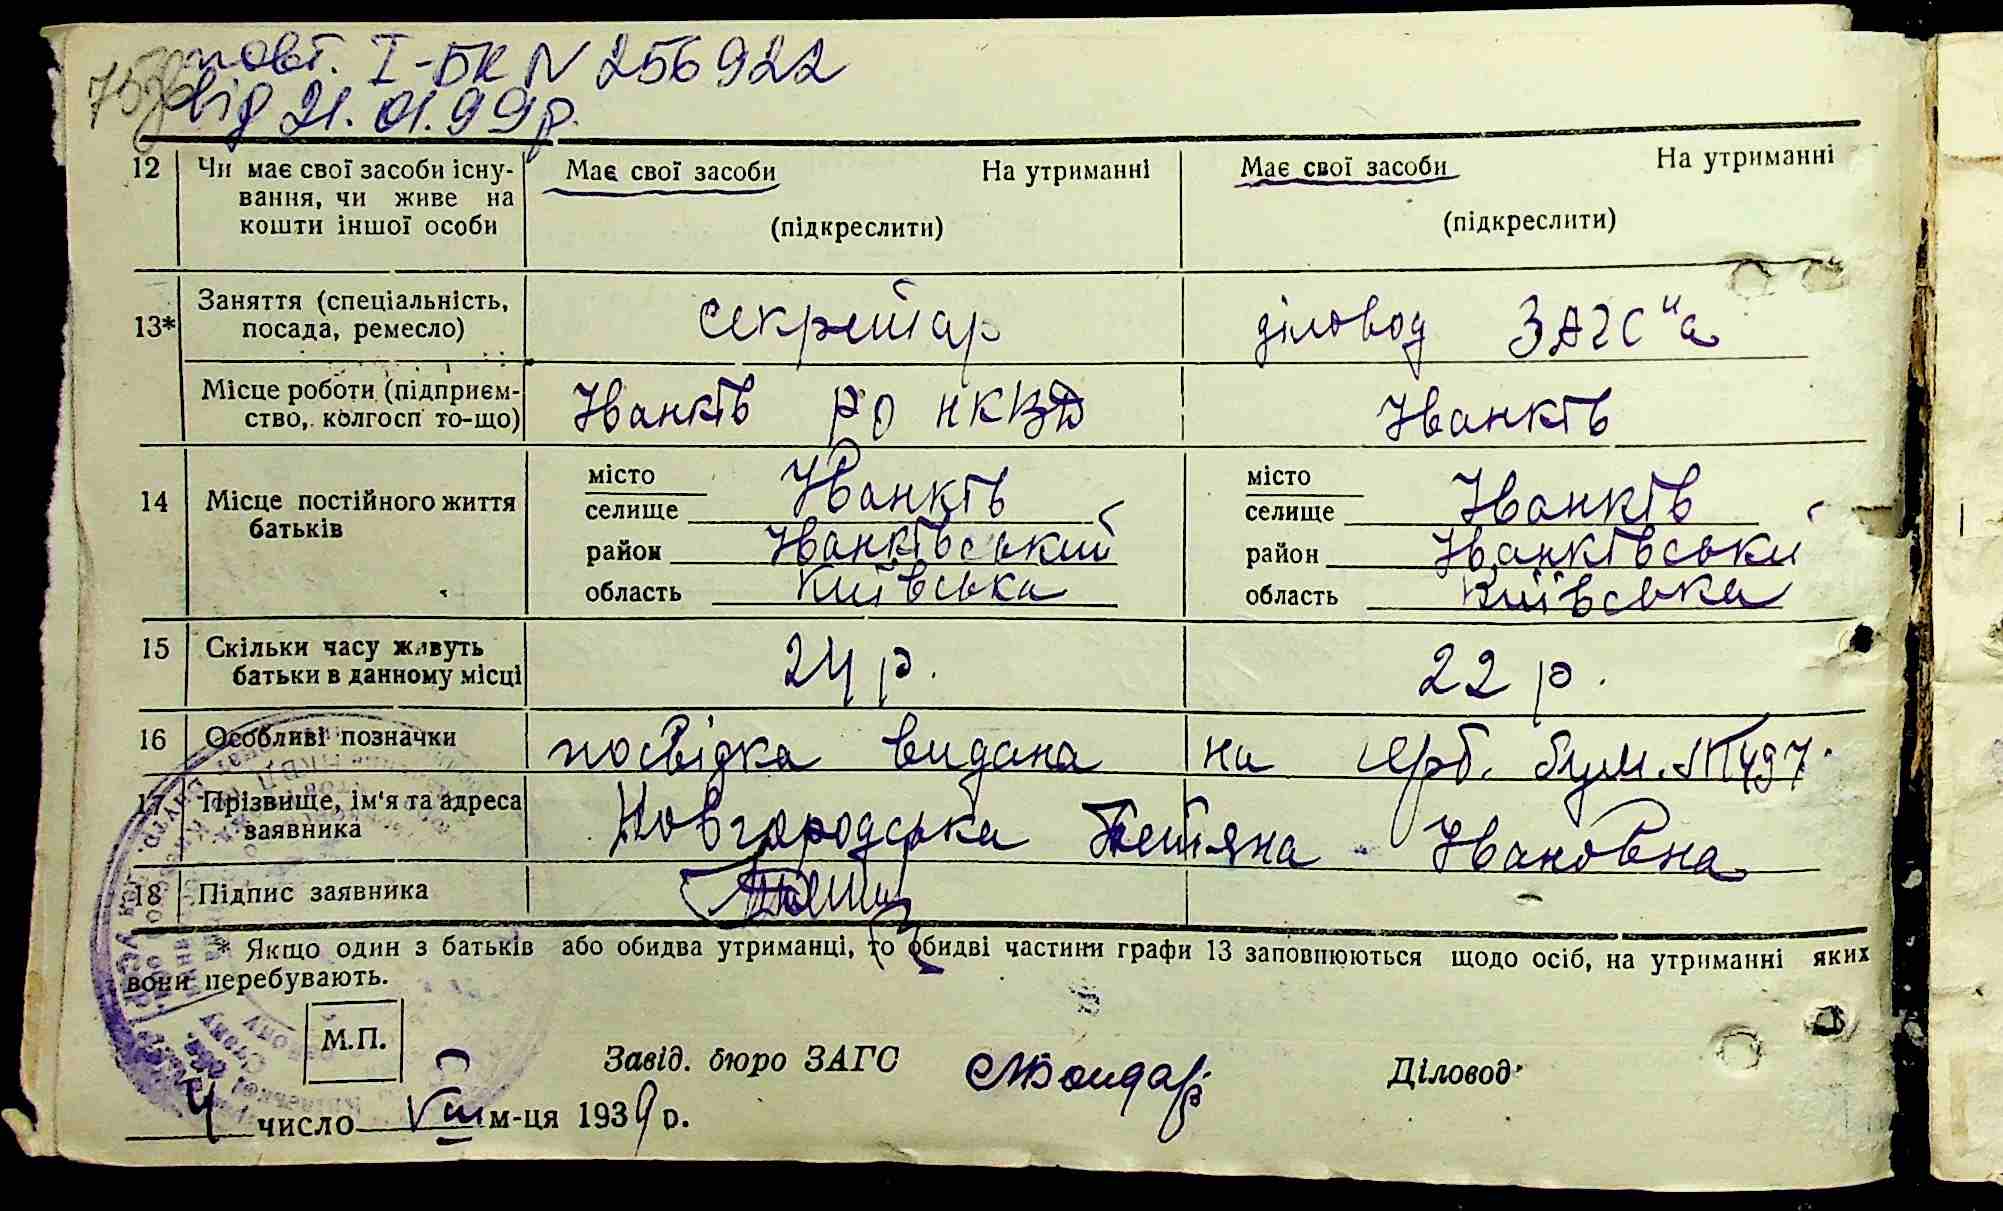 повт. І-БК N 256922
від 21.01.99р.
12 Чи має свої засоби існу- Має свої засоби На утриманні Має свої засоби На утриманні
вання, чи живе на
кошти іншої особи (підкреслити) (підкреслити)
13* Заняття (спеціальність, секретар діловод ЗАГС"а
посада, ремесло)
Місце роботи (підприєм- Іванків РО НКВД Іванків
ство, колгосп то-що)
14 Місце постійного життя місто Іванків місто Іванків
батьків селище селище
район Іванківський район Іванківськи
область Київська область Київська
15 Скільки часу живуть 24 р. 22 р.
батьки в данному місці
16 Особливі позначки посвідка видана на герб. бум.
17 Прізвище, ім'я та адреса Новгородська Тетяна Івановна
заявника
18 Підпис заявника
* Якщо один з батьків або обидва утриманці, то обидві частини графи 13 заповнюються щодо осіб, на утриманні яких
вони перебувають.
М.П.
Завід. бюро ЗАГС Бондар Діловод
4 число VIII м-ця 1939 р.